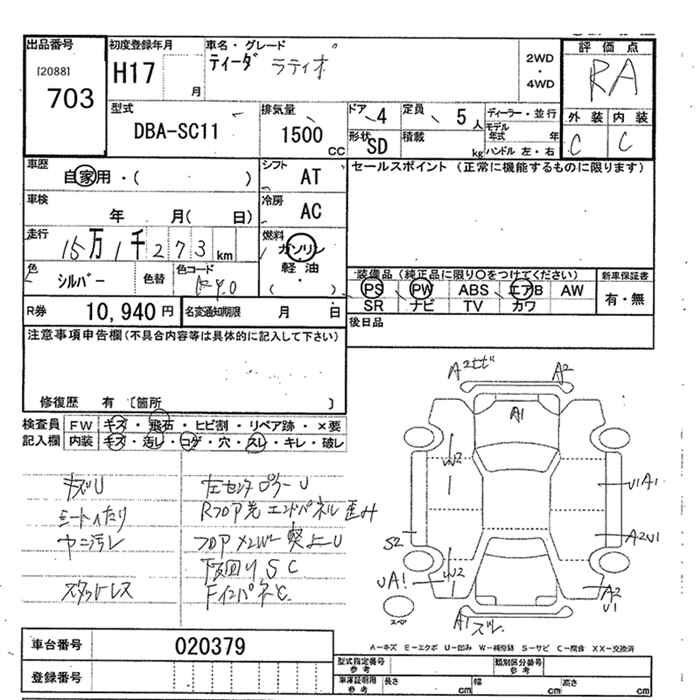 出品番号 初度登録年月 車名・グレード 評価点
[2088] H17 月 ティーダ ラティオ 2WD・4WD RA
703
型式 排気量 ドア 定員 ディーラー・並行 外装 内装
DBA-SC11 1500 CC 4 5人 モデル年式 年 C C
形状 SD 積載 kg ハンドル 左・右
車歴 シフト セールスポイント (正常に機能するものに限ります)
自家用・( ) AT
車検 冷房
年 月( 日) AC
走行 燃料
15万1千273km ガソリン
色 色替 色コード 軽油 装備品 (純正品に限り○をつけてください) 新車保証書
シルバー ・( ) PS PW ABS エアB AW 有・無
R券 10,940円 名変通知期限 月 日 SR ナビ TV カワ
注意事項申告欄(不具合内容等は具体的に記入して下さい) 後日品
修復歴 有 〔箇所 〕
検査員 FW キズ・飛石・ヒビ割・リペア跡・×要
記入欄 内装 キズ・汚レ・コゲ・穴・スレ・キレ・破レ
A2サビ A2
A1
W2
UA1
S2
A2U1
UA1
W2
A2
U1
A1スレ
スペア
キズU 左センターピラーU
シートヘたり Rフロア先エンドパネル歪み
ヤニ汚レ
下回りSC
スタットレス
A-キズ E-エクボ U-凹み W-補修跡 S-サビ C-腐食 XX-交換済
車台番号 020379
型式指定番号 参考 類別区分番号 参考
登録番号 車庫証明用 参考 長さ cm 幅 cm 高さ cm